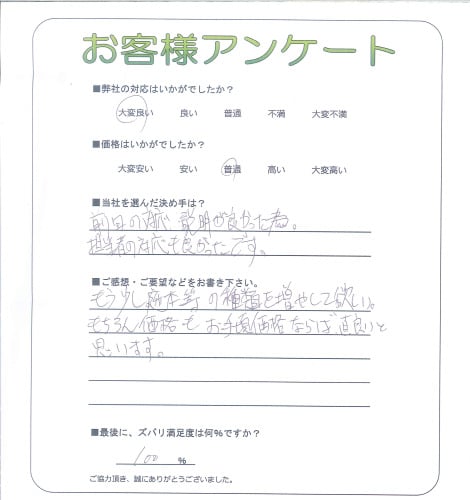 お客様アンケート
■弊社の対応はいかがでしたか?
大変良い 良い 普通 不満 大変不満
■価格はいかがでしたか?
大変安い 安い 普通 高い 大変高い
■当社を選んだ決め手は?
前日の対応 説明が良かった為。
担当者の対応も良かったです。
■ご感想・ご要望などをお書き下さい。
もう少し 等の種類を増やして欲しい。
もちろん価格もお手頃価格ならば直良いと
思います。
■最後に、ズバリ満足度は何%ですか?
100 %
ご協力頂き、誠にありがとうございました。